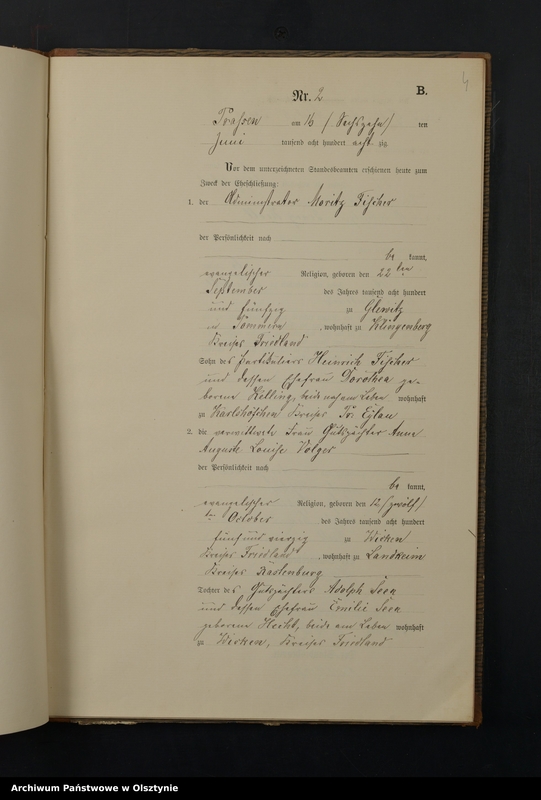 4
Nr. 2
B.
am 16 (Sechszehn) ten
Juni tausend acht hundert acht zig.
Vor dem unterzeichneten Standesbeamten erschienen heute zum
Zweck der Eheschließung:
1. der Administrator Moritz Fischer
der Persönlichkeit nach
be kannt,
evangelischer Religion, geboren den 22ten
September des Jahres tausend acht hundert
und fünfzig zu Glewitz
in Pommern, wohnhaft zu Klingenberg
Kreises Friedland
Sohn des Partikuliers Heinrich Fischer
und dessen Ehefrau Dorothea ge-
borene Kölling, beide noch am Leben wohnhaft
zu Karlshöfchen Kreises Pr. Eylau
2. die verwittwete Frau Gutspächter Anna
Auguste Louise Volger
der Persönlichkeit nach
be kannt,
evangelischer Religion, geboren den 12 (zwölf)
ten October des Jahres tausend acht hundert
fünf und vierzig zu Wicken
Kreises Friedland, wohnhaft zu Landkeim
Kreises Rastenburg
Tochter des Gutspächters Adolph
und dessen Ehefrau Emilie
geborene Hecht, beide am Leben wohnhaft
zu Wicken, Kreises Friedland
Archiwum Państwowe w Olsztynie